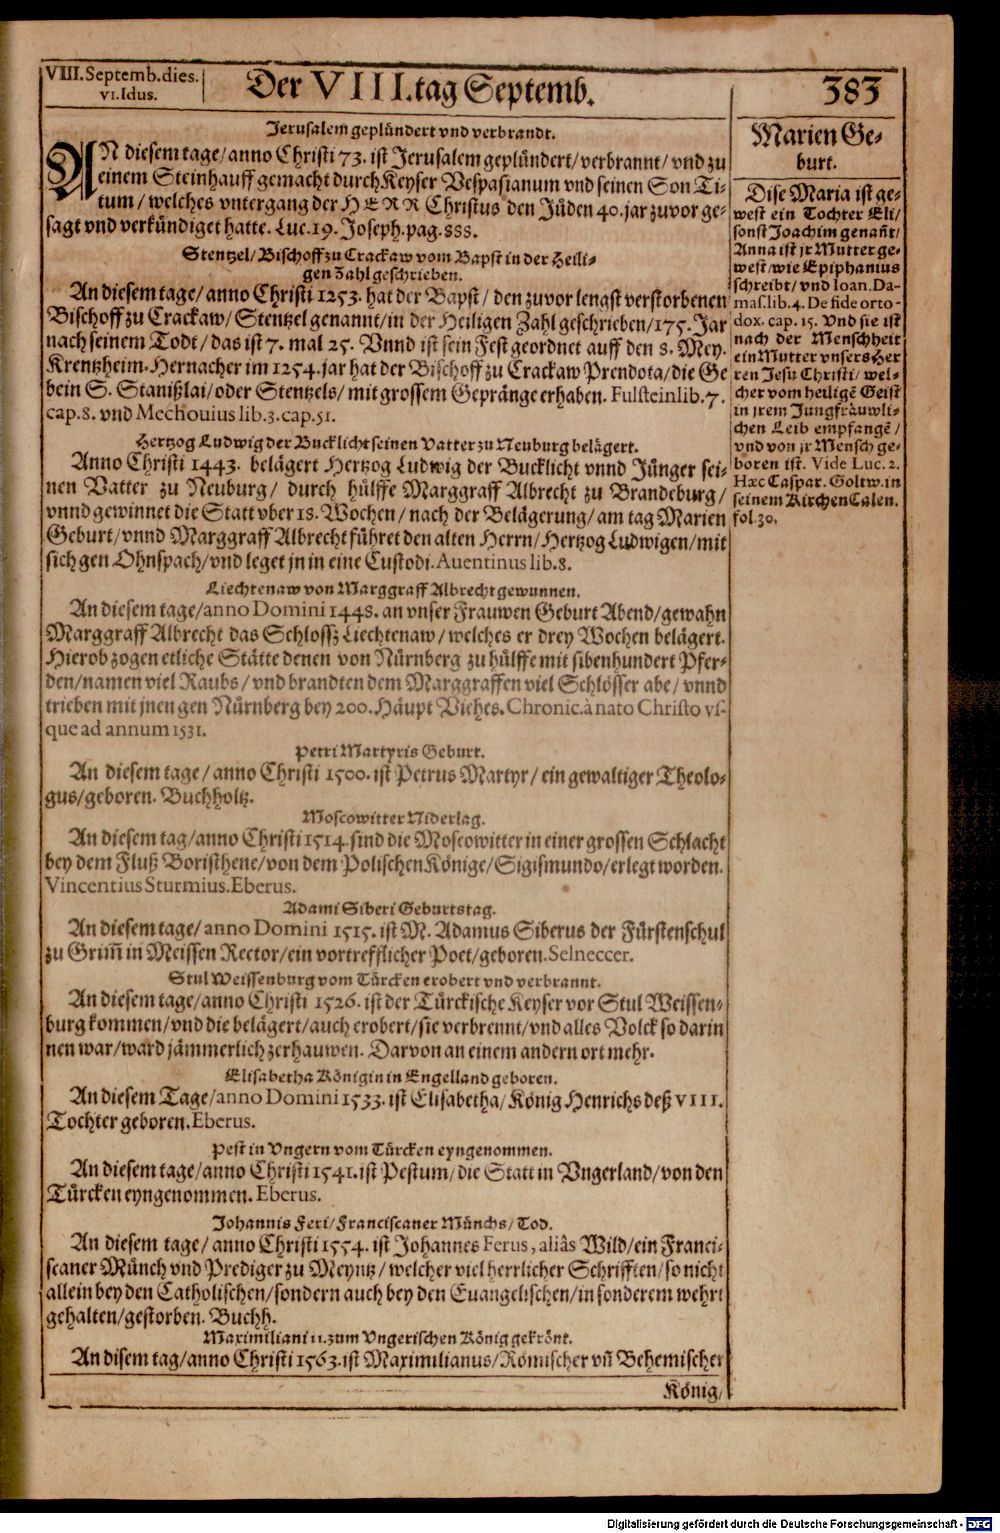 VIII. Septemb. dies.
VI. Idus.
Der VIII. tag Septemb.
383
Jerusalem geplündert vnd verbrandt.
AN diesem tage/ anno Christi 73. ist Jerusalem geplündert/ verbrannt/ vnd zu
einem Steinhauff gemacht durch Keyser Vespasianum vnd seinen Son Ti-
tum/ welches vntergang der HERR Christus den Jüden 40. jar zuvor ge-
sagt vnd verkündiget hatte. Luc. 19. Joseph. pag. 888.
Stentzel/ Bischoff zu Crackaw vom Bapst in der Heili-
gen Zahl geschrieben.
An diesem tage/ anno Christi 1253. hat der Bapst/ den zuvor lengst verstorbenen
Bischoff zu Crackaw/ Stentzel genannt/ in der Heiligen Zahl geschrieben/ 175. Jar
nach seinem Todt/ das ist 7. mal 25. Vnnd ist sein Fest geordnet auff den 8. Mey.
Krentzheim. Hernacher im 1254. jar hat der Bischoff zu Crackaw Prendota/ die Ge
bein S. Stanißlai/ oder Stentzels/ mit grossem Gepränge erhaben. Fulstein lib. 7.
cap. 8. vnd Mechouius lib. 3. cap. 51.
Hertzog Ludwig der Bucklicht seinen Vatter zu Neuburg belägert.
Anno Christi 1443. belägert Hertzog Ludwig der Bucklicht vnnd Jünger sei-
nen Vatter zu Neuburg/ durch hülffe Marggraff Albrecht zu Brandeburg/
vnnd gewinnet die Statt vber 18. Wochen/ nach der Belägerung/ am tag Marien
Geburt/ vnnd Marggraff Albrecht führet den alten Herrn/ Hertzog Ludwigen/ mit
sich gen Ohnspach/ vnd leget jn in eine Custodi. Auentinus lib. 8.
Liechtenaw von Marggraff Albrecht gewunnen.
An diesem tage/ anno Domini 1448. an vnser Frauwen Geburt Abend/ gewahn
Marggraff Albrecht das Schlossz Liechtenaw/ welches er drey Wochen belägert.
Hierob zogen etliche Stätte denen von Nürnberg zu hülffe mit sibenhundert Pfer-
den/ namen viel Raubs/ vnd brandten dem Marggraffen viel Schlösser abe/ vnnd
trieben mit jnen gen Nürnberg bey 200. Häupt Viehes. Chronic. à nato Christo vs-
que ad annum 1531.
Petri Martyris Geburt.
An diesem tage/ anno Christi 1500. ist Petrus Martyr/ ein gewaltiger Theolo-
gus/ geboren. Buchholtz.
Moscowitter Niderlag.
An diesem tag/ anno Christi 1514. sind die Moscowitter in einer grossen Schlacht
bey dem Fluß Boristhene/ von dem Polischen Könige/ Sigismundo/ erlegt worden.
Vincentius Sturmius. Eberus.
Adami Siberi Geburtstag.
An diesem tage/ anno Domini 1515. ist M. Adamus Siberus der Fürstenschul
zu Grim̃ in Meissen Rector/ ein vortrefflicher Poet/ geboren. Selneccer.
Stul Weissenburg vom Türcken erobert vnd verbrannt.
An diesem tage/ anno Christi 1526. ist der Türckische Keyser vor Stul Weissen-
burg kommen/ vnd die belägert/ auch erobert/ sie verbrennt/ vnd alles Volck so darin
nen war/ ward jämmerlich zerhauwen. Darvon an einem andern ort mehr.
Elisabetha Königin in Engelland geboren.
An diesem Tage/ anno Domini 1533. ist Elisabetha/ König Henrichs deß VIII.
Tochter geboren. Eberus.
Pest in Vngern vom Türcken eyngenommen.
An diesem tage/ anno Christi 1541. ist Pestum/ die Statt in Vngerland/ von den
Türcken eyngenommen. Eberus.
Johannis Feri/ Franciscaner Münchs/ Tod.
An diesem tage/ anno Christi 1554. ist Johannes Ferus, aliâs Wild/ ein Franci-
scaner Münch vnd Prediger zu Meyntz/ welcher viel herrlicher Schrifften/ so nicht
allein bey den Catholischen/ sondern auch bey den Euangelischen/ in sonderem wehrt
gehalten/ gestorben. Buchh.
Maximiliani II. zum Vngerischen König gekrönt.
An disem tag/ anno Christi 1563. ist Maximilianus/ Römischer vñ Behemischer
König/
Marien Ge-
burt.
Dise Maria ist ge-
west ein Tochter Eli/
sonst Joachim genañt/
Anna ist jr Mutter ge-
west/ wie Epiphanius
schreibt/ vnd Ioan. Da-
mas. lib. 4. De fide orto-
dox. cap. 15. Vnd sie ist
nach der Menschheit
ein Mutter vnsers Her
ren Jesu Christi/ wel-
cher vom heiligē Geist
in jrem Jungfräuwli-
chen Leib empfangē/
vnd von jr Mensch ge-
boren ist. Vide Luc. 2.
Hæc Caspar. Goltw. in
seinem Kirchen Calen.
fol. 30.
Digitalisierung gefördert durch die Deutsche Forschungsgemeinschaft - DFG